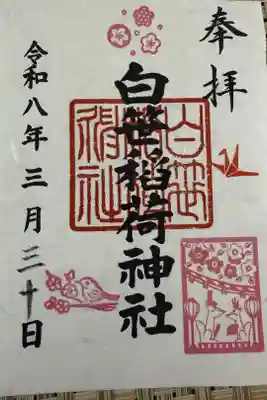 奉拝
白笹稲荷神社
白笹稲荷社
令和八年三月三十日